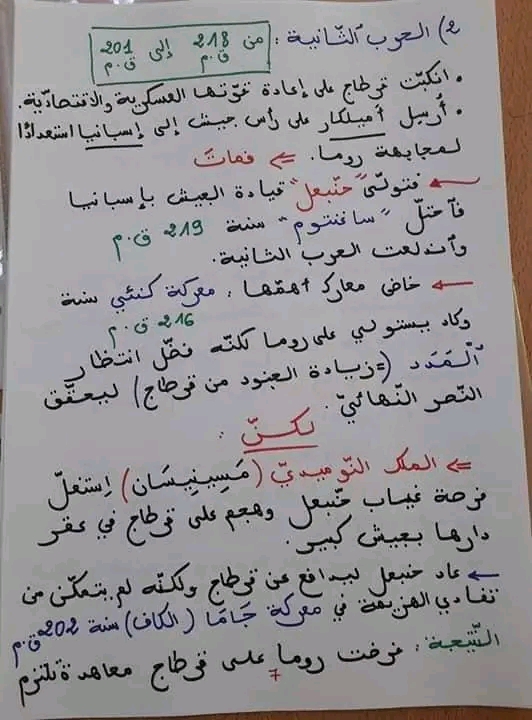 2) الحرب الثّانية : من 218 ق.م إلى 201 ق.م
• انكبّت قرطاج على إعادة قوّتها العسكرية والاقتصاديّة.
• أُرسِل أميلكار على رأس جيش إلى إسبانيا استعدادًا
لمجابهة روما. ⇐ فماتَ
← فتولّى "حنّبعل" قيادة الجيش بإسبانيا
فاحتلّ "ساغنتوم" سنة 219 ق.م
وآندلعت الحرب الثانية.
← خاض معارك أهمّها : معركة كنّاي سنة
216 ق.م
وكاد يستولي على روما لكنّه فضّل انتظار
آلْمَدَد (= زيادة الجنود من قرطاج) ليحقّق
النّصر النّهائيّ.
لكنّ :
⇐ الملك النّوميديّ (مَسِينِيسَان) اِستغلّ
فرصة غياب حنّبعل وهجم على قرطاج في عقر
دارها بجيش كبير.
← عاد حنبعل ليدافع عن قرطاج ولكنّه لم يتمكّن من
تفادي الهزيمة في معركة جَامَا (الكاف) سنة 202 ق.م
النّتيجة : فرضت روما على قرطاج معاهدة تلتزم
7